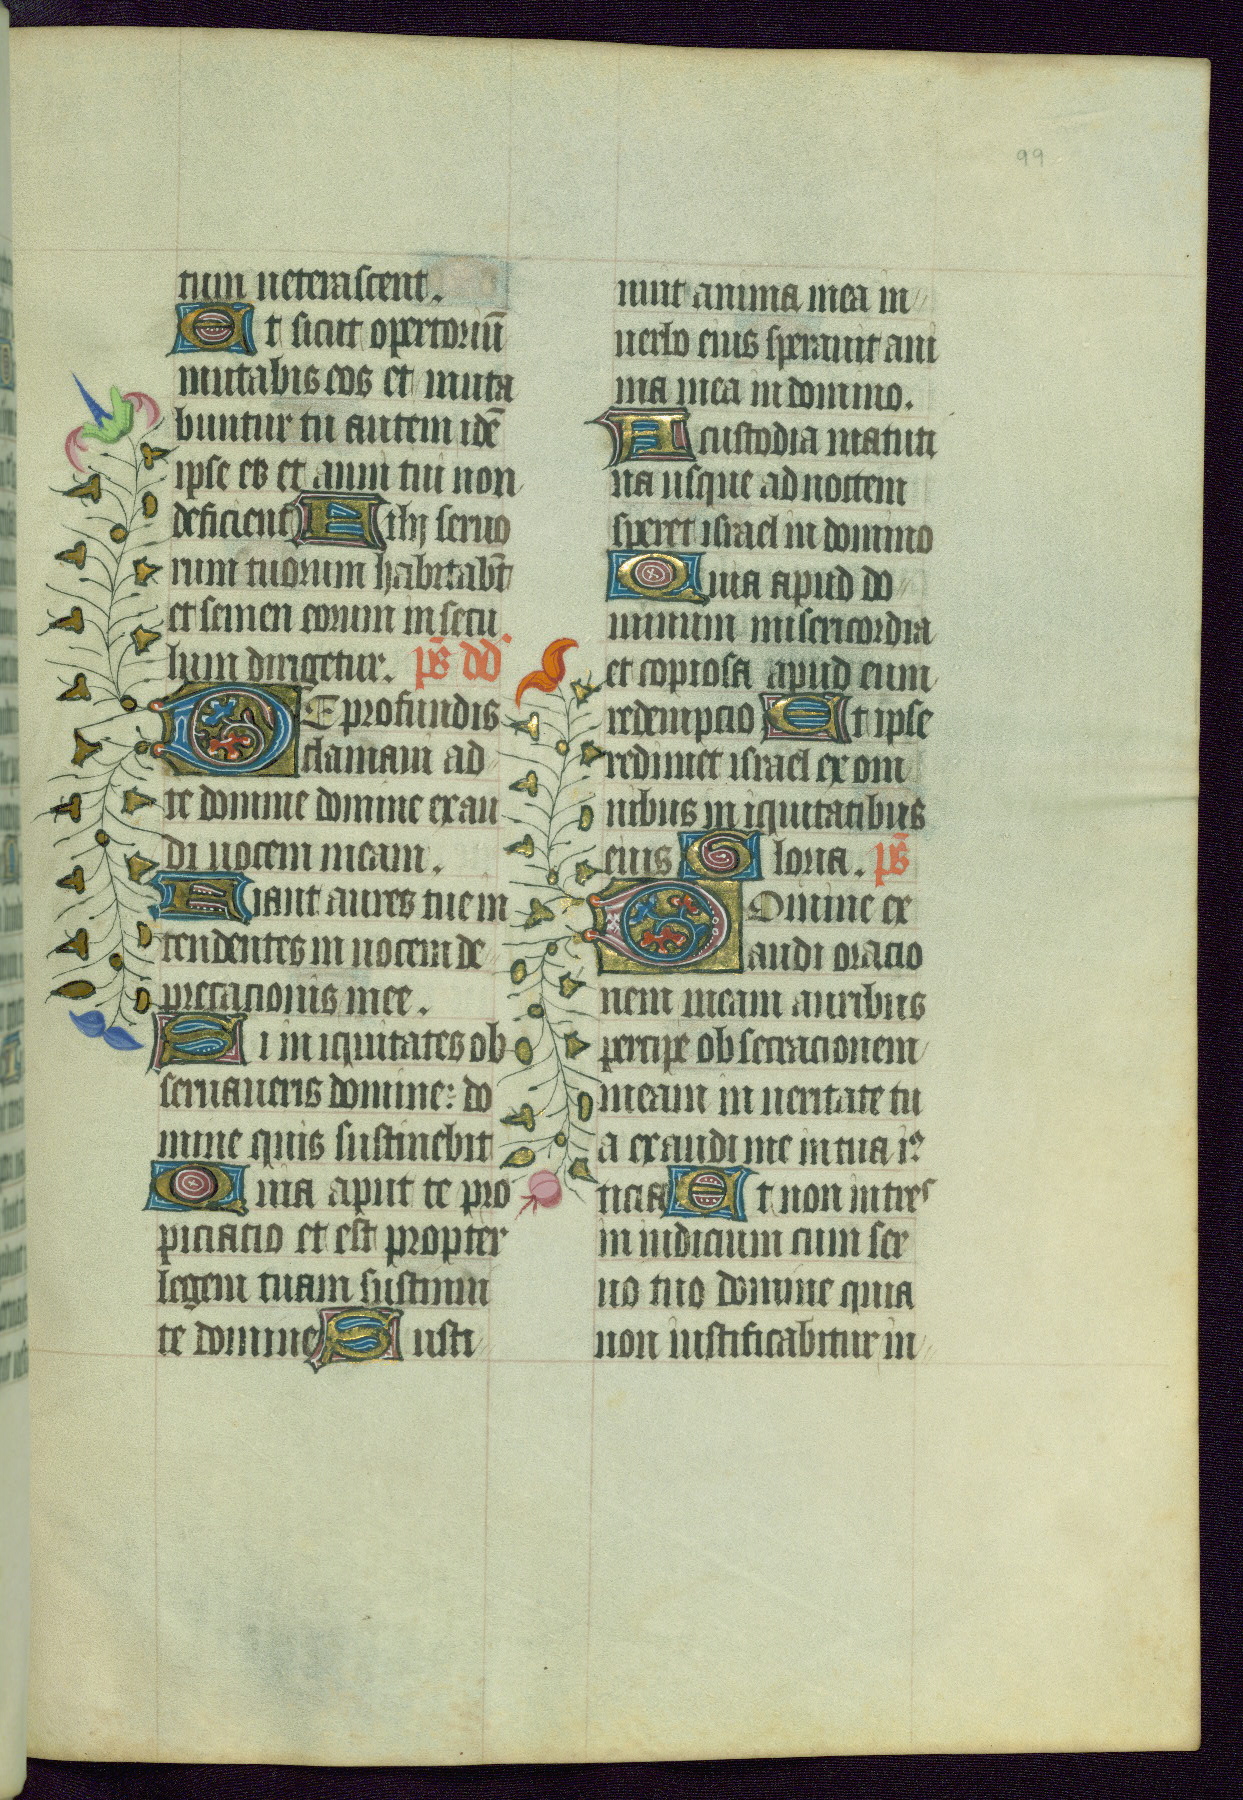 99
tum ueterascent.
Et sicut opertoriū
mutabis eos et muta
buntur tu autem idē
ipse es et anni tui non
deficient Filij seruo
rum tuorum habitabūt
et semen eorum in secu
lum dirigetur. ps̄ dd
DE profundis
clamaui ad
te domine domine exau
di uocem meam.
Fiant aures tue in
tendentes in uocem de
precationis mee.
Si iniquitates ob
seruaueris domine: do
mine quis sustinebit
Quia aput te pro
piciacio et est propter
legem tuam sustinui
te domine Susti
nuit anima mea in
uerbo eius sperauit ani
ma mea in domino.
A custodia matuti
na usque ad noctem
speret israel in domino
Quia apud do
minum misericordia
et copiosa apud eum
redempcio Et ipse
redimet israel ex om
nibus iniquitatibus
eius Gloria. ps̄
DOmine ex
audi oracio
nem meam auribus
percipe obsecracionem
meam in ueritate tu
a exaudi me in tua iꝰ
ticia Et non intres
in iudicium cum ser
uo tuo domine quia
non iustificabitur in